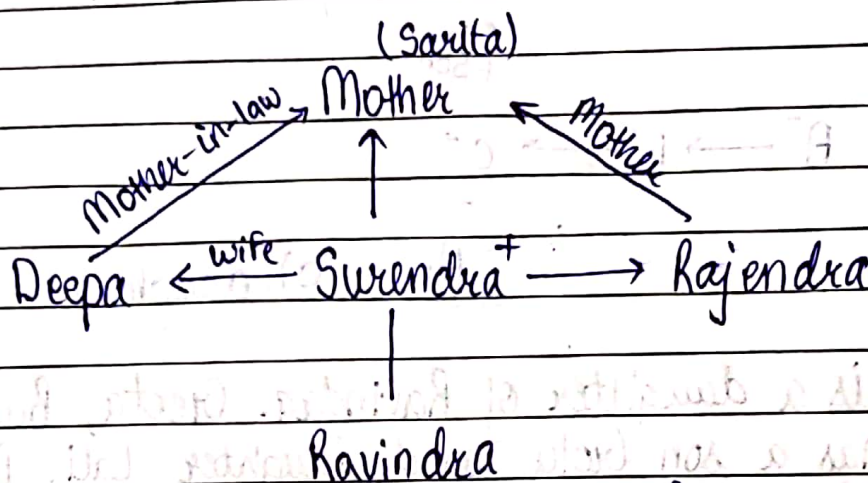 (Sarita)
Mother
Mother-in-law
Mother
wife
Deepa Surendra+ Rajendra
Ravindra